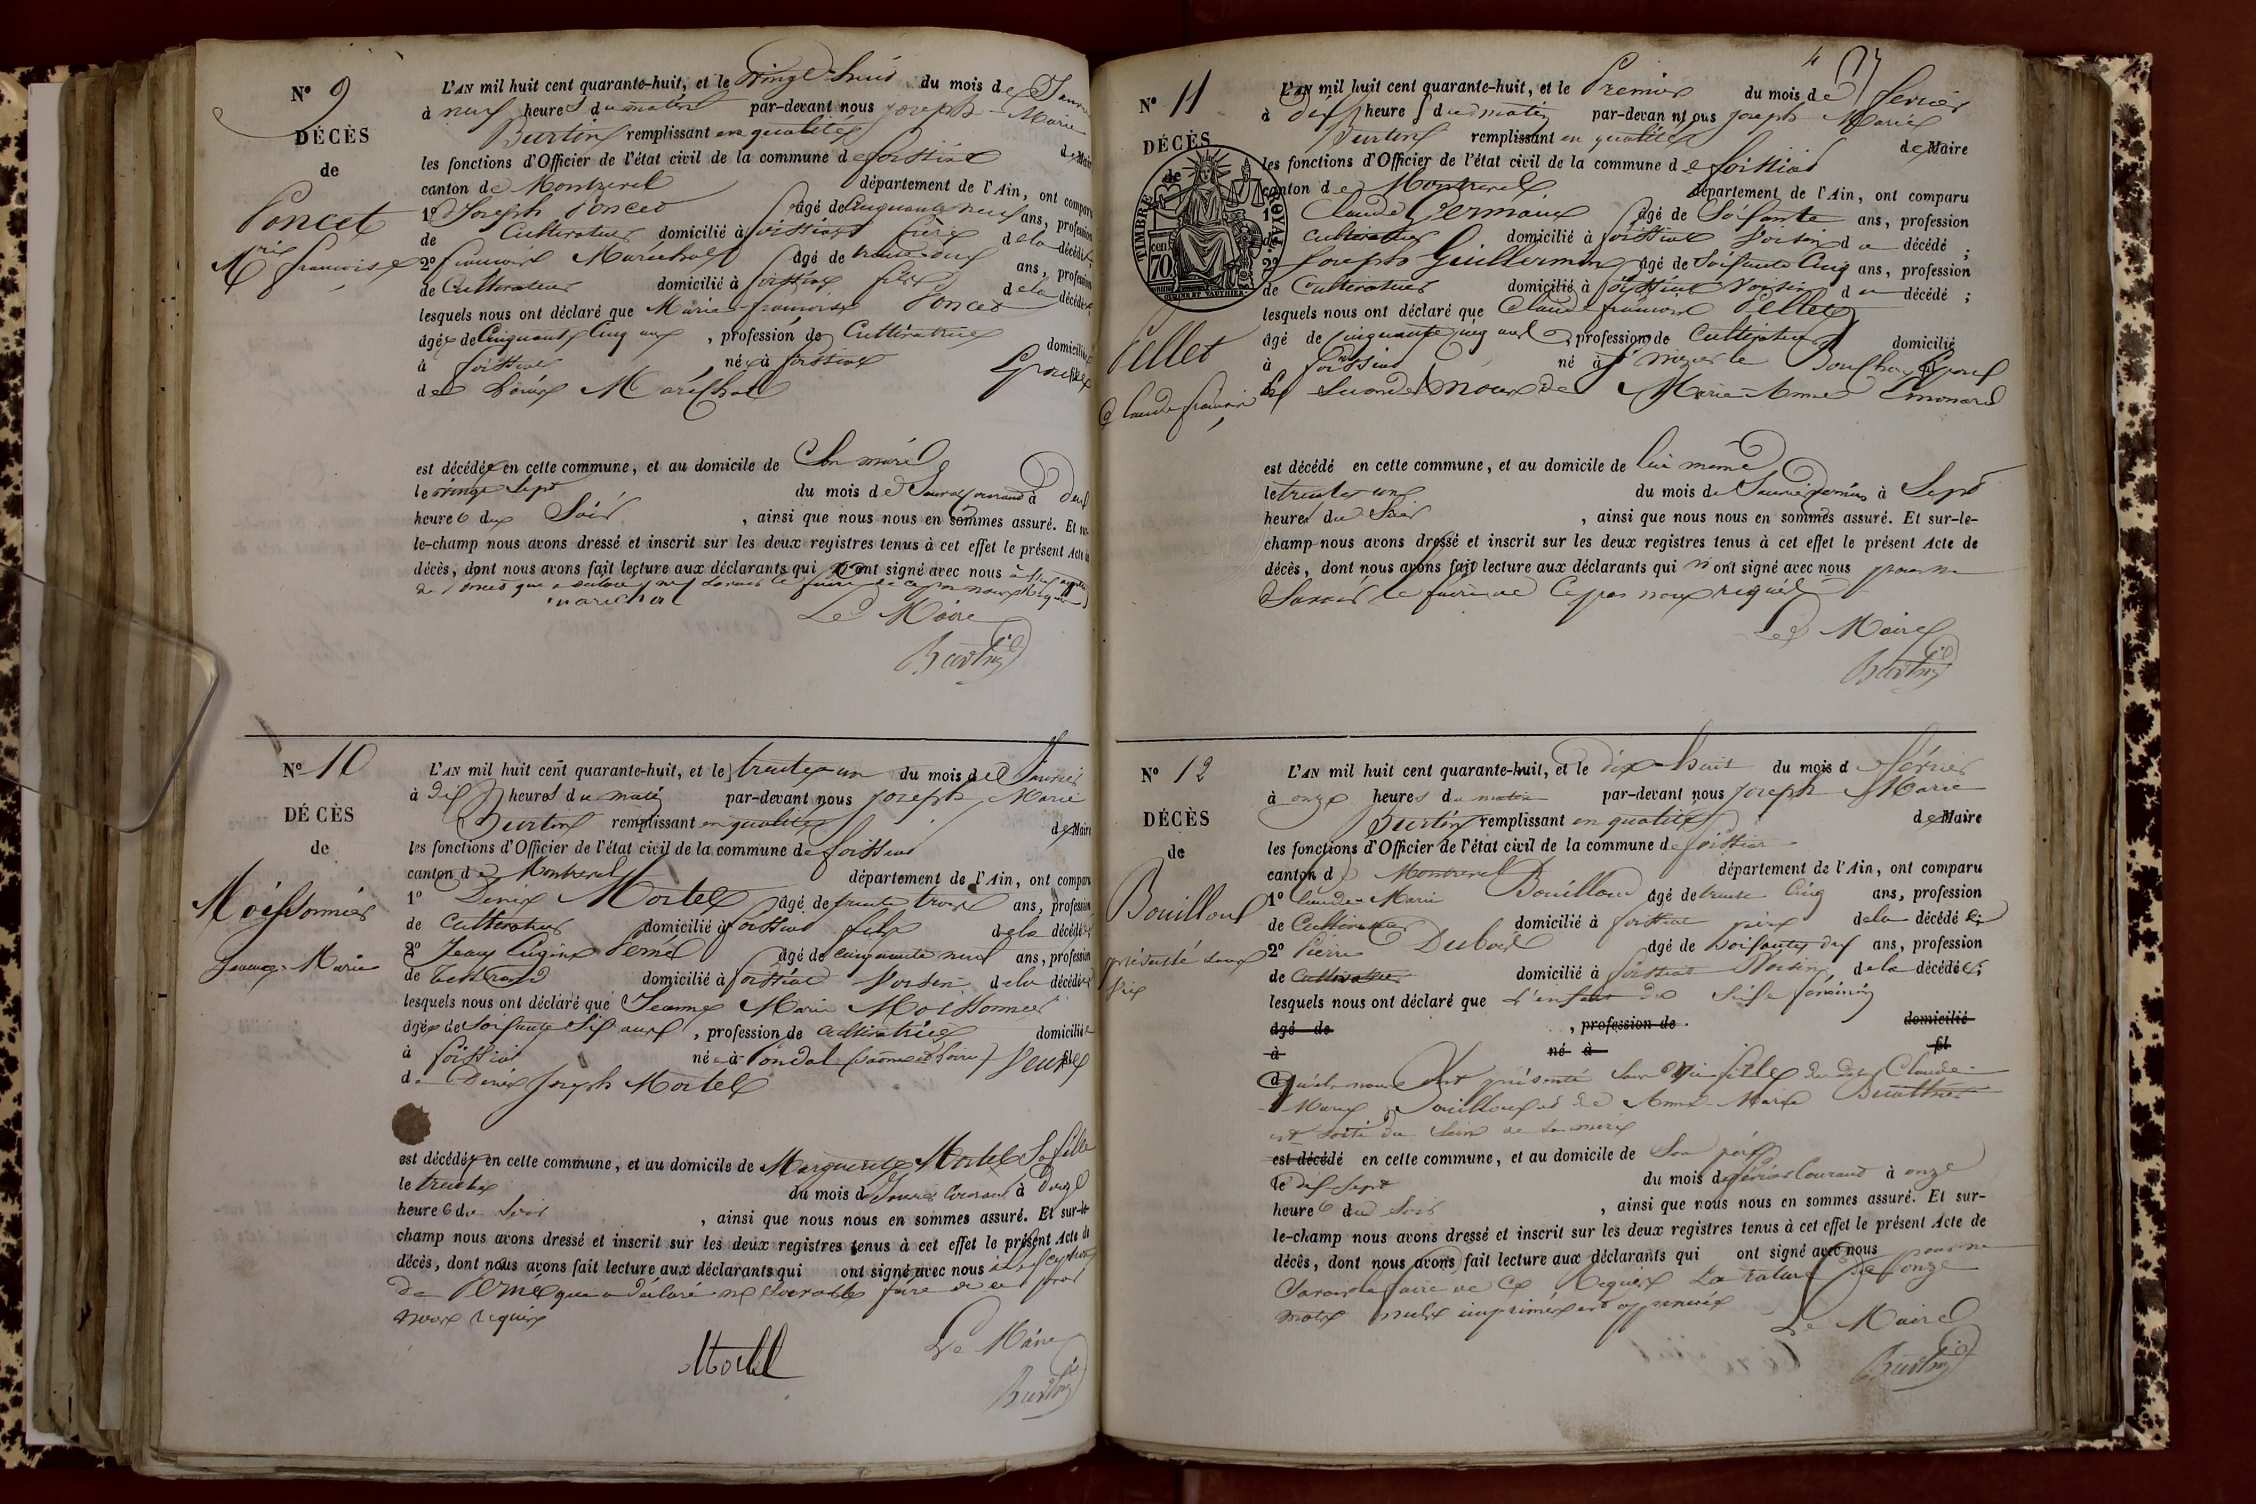 N° 9
DÉCÈS
de
Poncet
Mrie françoise
L'AN mil huit cent quarante-huit, et le vingt-huit du mois de Janvier
à neuf heures du matin par-devant nous joseph-Marie
Burtin remplissant en qualité de Maire
les fonctions d'Officier de l'état civil de la commune de foissiat
canton de Montrevel département de l'Ain, ont comparu
1° Joseph Poncet âgé de cinquante neuf ans, profession
de Cultivateur domicilié à foissiat frère de la décédée,
2° françois Maréchal âgé de trente deux ans, profession
de Cultivateur domicilié à foissiat de la décédée,
lesquels nous ont déclaré que Marie-françoise Poncet
âgée de Cinquante Cinq ans, profession de Cultivatrice domiciliée
à foissiat née à foissiat Epouse
de Maréchal
est décédée en cette commune, et au domicile de Son mari
le vingt sept du mois de Janvier courant à deux
heures du Soir, ainsi que nous nous en sommes assuré. Et sur-
le-champ nous avons dressé et inscrit sur les deux registres tenus à cet effet le présent Acte de
décès, dont nous avons fait lecture aux déclarants qui ont signé avec nous à l'exception
de Poncet que a déclaré ne savoir le faire de ce par nous requis
maréchal
Le Maire
Burtin
N° 10
DÉCÈS
de
Moissonnier
Jeanne-Marie
L'AN mil huit cent quarante-huit, et le trente-un du mois de Janvier
à dix heures du matin par-devant nous joseph Marie
Burtin remplissant en qualité de Maire
les fonctions d'Officier de l'état civil de la commune de foissiat
canton de Montrevel département de l'Ain, ont comparu
1° Denis Mortel âgé de trente trois ans, profession
de Cultivateur domicilié à foissiat fils de la décédée
2° Jean Perné âgé de cinquante neuf ans, profession
de domicilié à foissiat Voisin de la décédée
lesquels nous ont déclaré que Jeanne Marie Moissonnier
âgée de soixante Six ans, profession de cultivatrice domiciliée
à foissiat née à (Saône et Loire) Veuve
de Denis Joseph Mortel
est décédée en cette commune, et au domicile de Marguerite Mortel Sa fille
le trente du mois de Janvier Courant à onze
heures du Soir, ainsi que nous nous en sommes assuré. Et sur-le-
champ nous avons dressé et inscrit sur les deux registres tenus à cet effet le présent Acte de
décès, dont nous avons fait lecture aux déclarants qui ont signé avec nous à l'exception
de Perné que a déclaré ne Savoir le faire de ce par
nous requis
Mortel
Le Maire
Burtin
4
N° 11
DÉCÈS
de
TIMBRE ROYAL
70 cen
Pellet
Claude françois
L'AN mil huit cent quarante-huit, et le Premier du mois de fevrier
à dix heures du matin par-devan nt ous joseph Marie
Burtin remplissant en qualité de Maire
les fonctions d'Officier de l'état civil de la commune de foissiat
canton de Montrevel département de l'Ain, ont comparu
1° Claude Germain âgé de Soixante ans, profession
de cultivateur domicilié à foissiat Voisin du décédé ;
2° Joseph Guillermin âgé de Soixante Cinq ans, profession
de Cultivateur domicilié à foissiat Voisin du décédé ;
lesquels nous ont déclaré que Claude françois Pellet
âgé de cinquante cinq ans, profession de Cultivateur domicilié
à foissiat né à St nizier le Bouchoux Epoux
en Seconde noces de Marie-Anne Emonard
est décédé en cette commune, et au domicile de lui même
le trente un du mois de Janvier dernier à Sept
heures du Soir, ainsi que nous nous en sommes assuré. Et sur-le-
champ nous avons dressé et inscrit sur les deux registres tenus à cet effet le présent Acte de
décès, dont nous avons fait lecture aux déclarants qui n'ont signé avec nous pour ne
Savoir le faire de Ce par nous requis
Le Maire
Burtin
N° 12
DÉCÈS
de
Bouilloux
présenté sans
vie
L'AN mil huit cent quarante-huit, et le dix-huit du mois de février
à onze heures du matin par-devant nous joseph Marie
Burtin remplissant en qualité de Maire
les fonctions d'Officier de l'état civil de la commune de foissiat
canton de Montrevel département de l'Ain, ont comparu
1° Claude-Marie Bouilloux âgé de trente Cinq ans, profession
de Cultivateur domicilié à foissiat père de la décédée ;
2° Pierre Dubois âgé de Soixante dix ans, profession
de Cultivateur domicilié à foissiat Voisin de la décédée ;
lesquels nous ont déclaré que l'enfant du Sexe féminin
âgé de, profession de domicilié
à né à fil
qu'il nous ont présenté Sans Vie fille du dit Claude-
Marie Bouilloux et de Anne-Marie
est sorti du Sein de Sa mère
est décédé en cette commune, et au domicile de Son père
le dix Sept du mois de février Courant à onze
heures du Soir, ainsi que nous nous en sommes assuré. Et sur-
le-champ nous avons dressé et inscrit sur les deux registres tenus à cet effet le présent Acte de
décès, dont nous avons fait lecture aux déclarants qui ont signé avec nous pour ne
Savoir le faire de Ce Requis La rature de onze
mots nuls imprimés est approuvée
Le Maire
Burtin